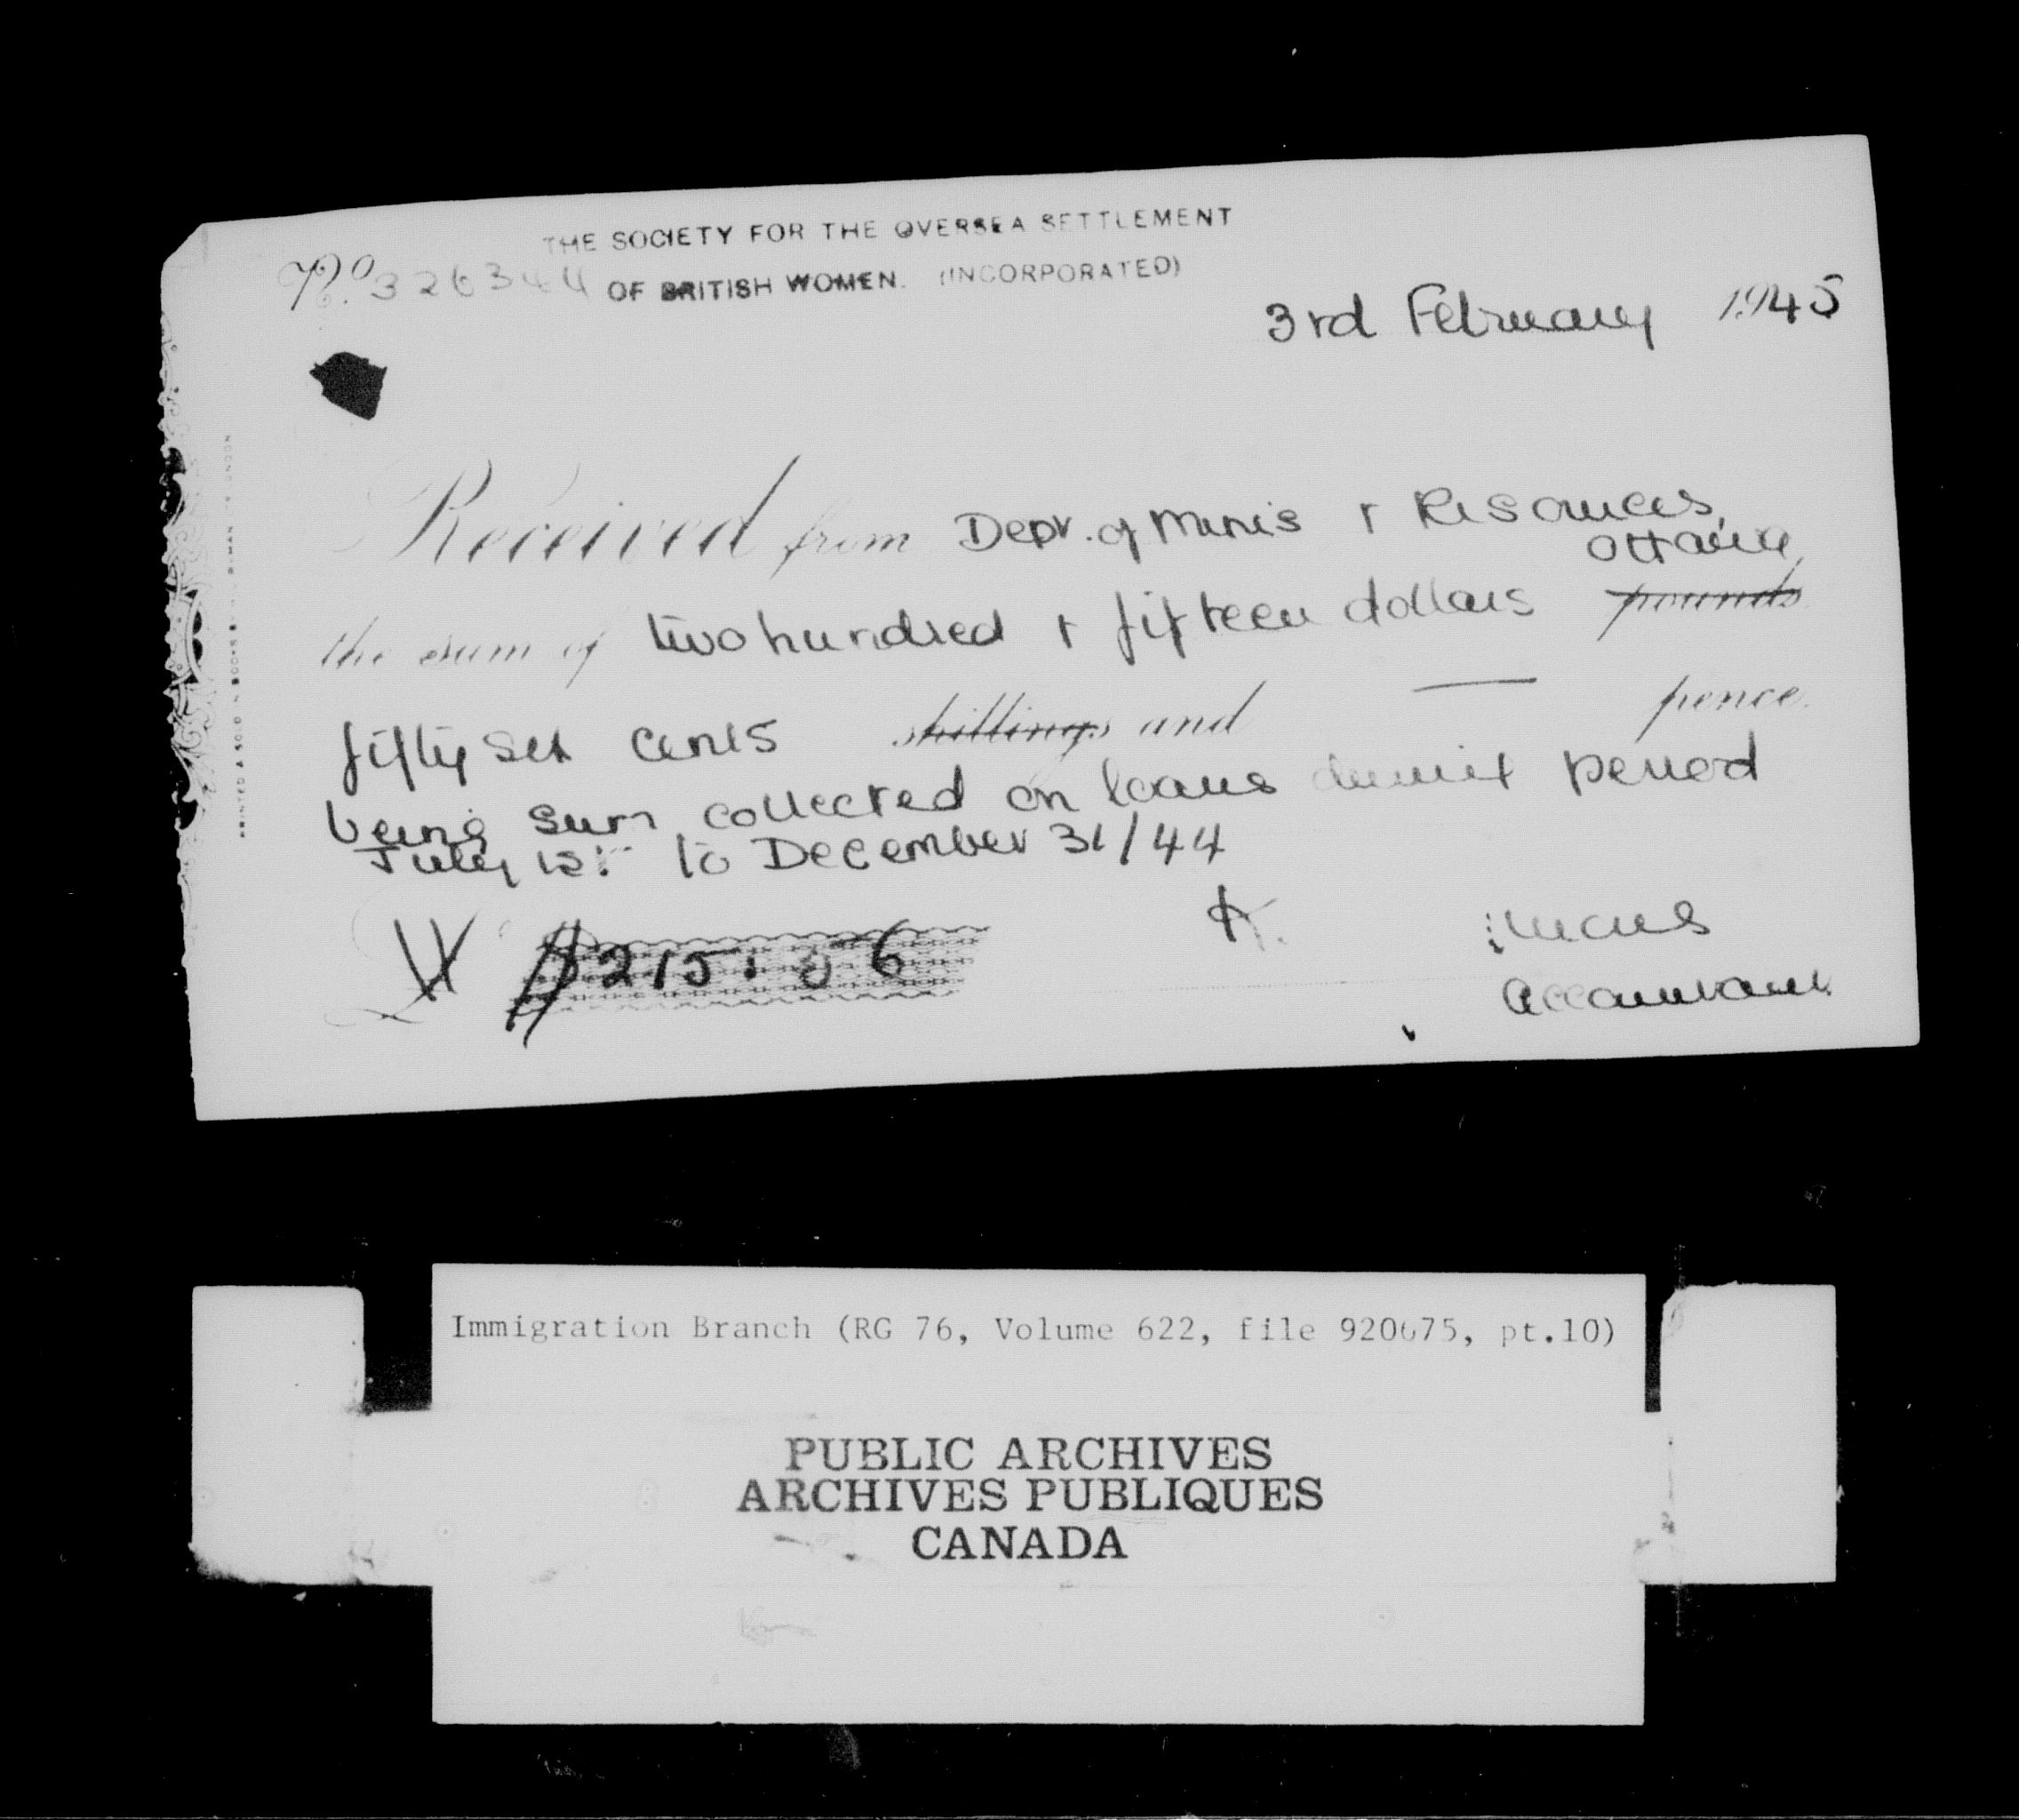 THE SOCIETY FOR THE OVERSEA SETTLEMENT
OF BRITISH WOMEN. (INCORPORATED)
No. 326344
3rd February 1945
Received from Dept. of Mines & Resources,
Ottawa
the sum of two hundred & fifteen dollars pounds
fifty six cents shillings and — pence.
being sum collected on loans during period
July 1st to December 31/44
$215.56
Accountant
Immigration Branch (RG 76, Volume 622, file 920675, pt.10)
PUBLIC ARCHIVES
ARCHIVES PUBLIQUES
CANADA